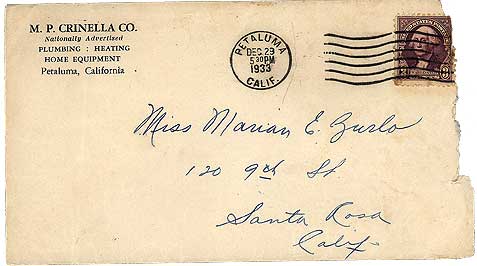 M. P. CRINELLA CO.
Nationally Advertised
PLUMBING : HEATING
HOME EQUIPMENT
Petaluma, California
PETALUMA
DEC 23
5 30 PM
1933
CALIF.
3
Miss Marian E. Zurlo
120 9th St.
Santa Rosa
Calif.